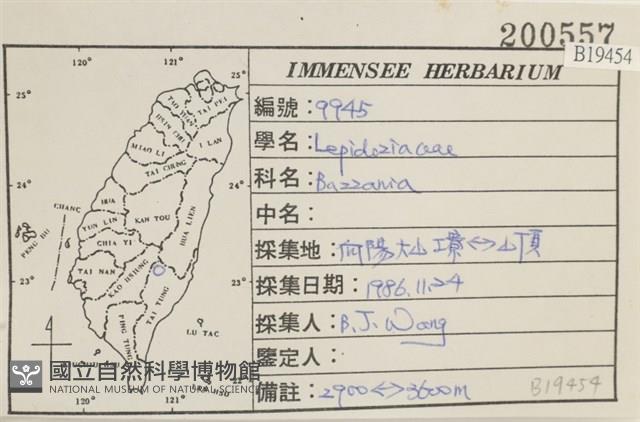 200557
B19454
IMMENSEE HERBARIUM
編號：9945
學名：Lepidoziaceae
科名：Bazzania
中名：
採集地：向陽大山
山頂
採集日期：1986.11.24
採集人：B.J. Wang
鑒定人：
備註：2900<->3600m
B19454
120°
121°
25°
25°
TAI PEI
I LAN
MIAO LI
TAI CHUNG
24°
24°
CHANG
HUA
NAN TOU
HUA LIEN
YUN LIN
PENG HU
CHIA YI
TAI NAN
KAO HSIUNG
23°
23°
TAI TUNG
PING TUNG
LU TAO
國立自然科學博物館
NATIONAL MUSEUM OF NATURAL SCIENCE
120°
121°